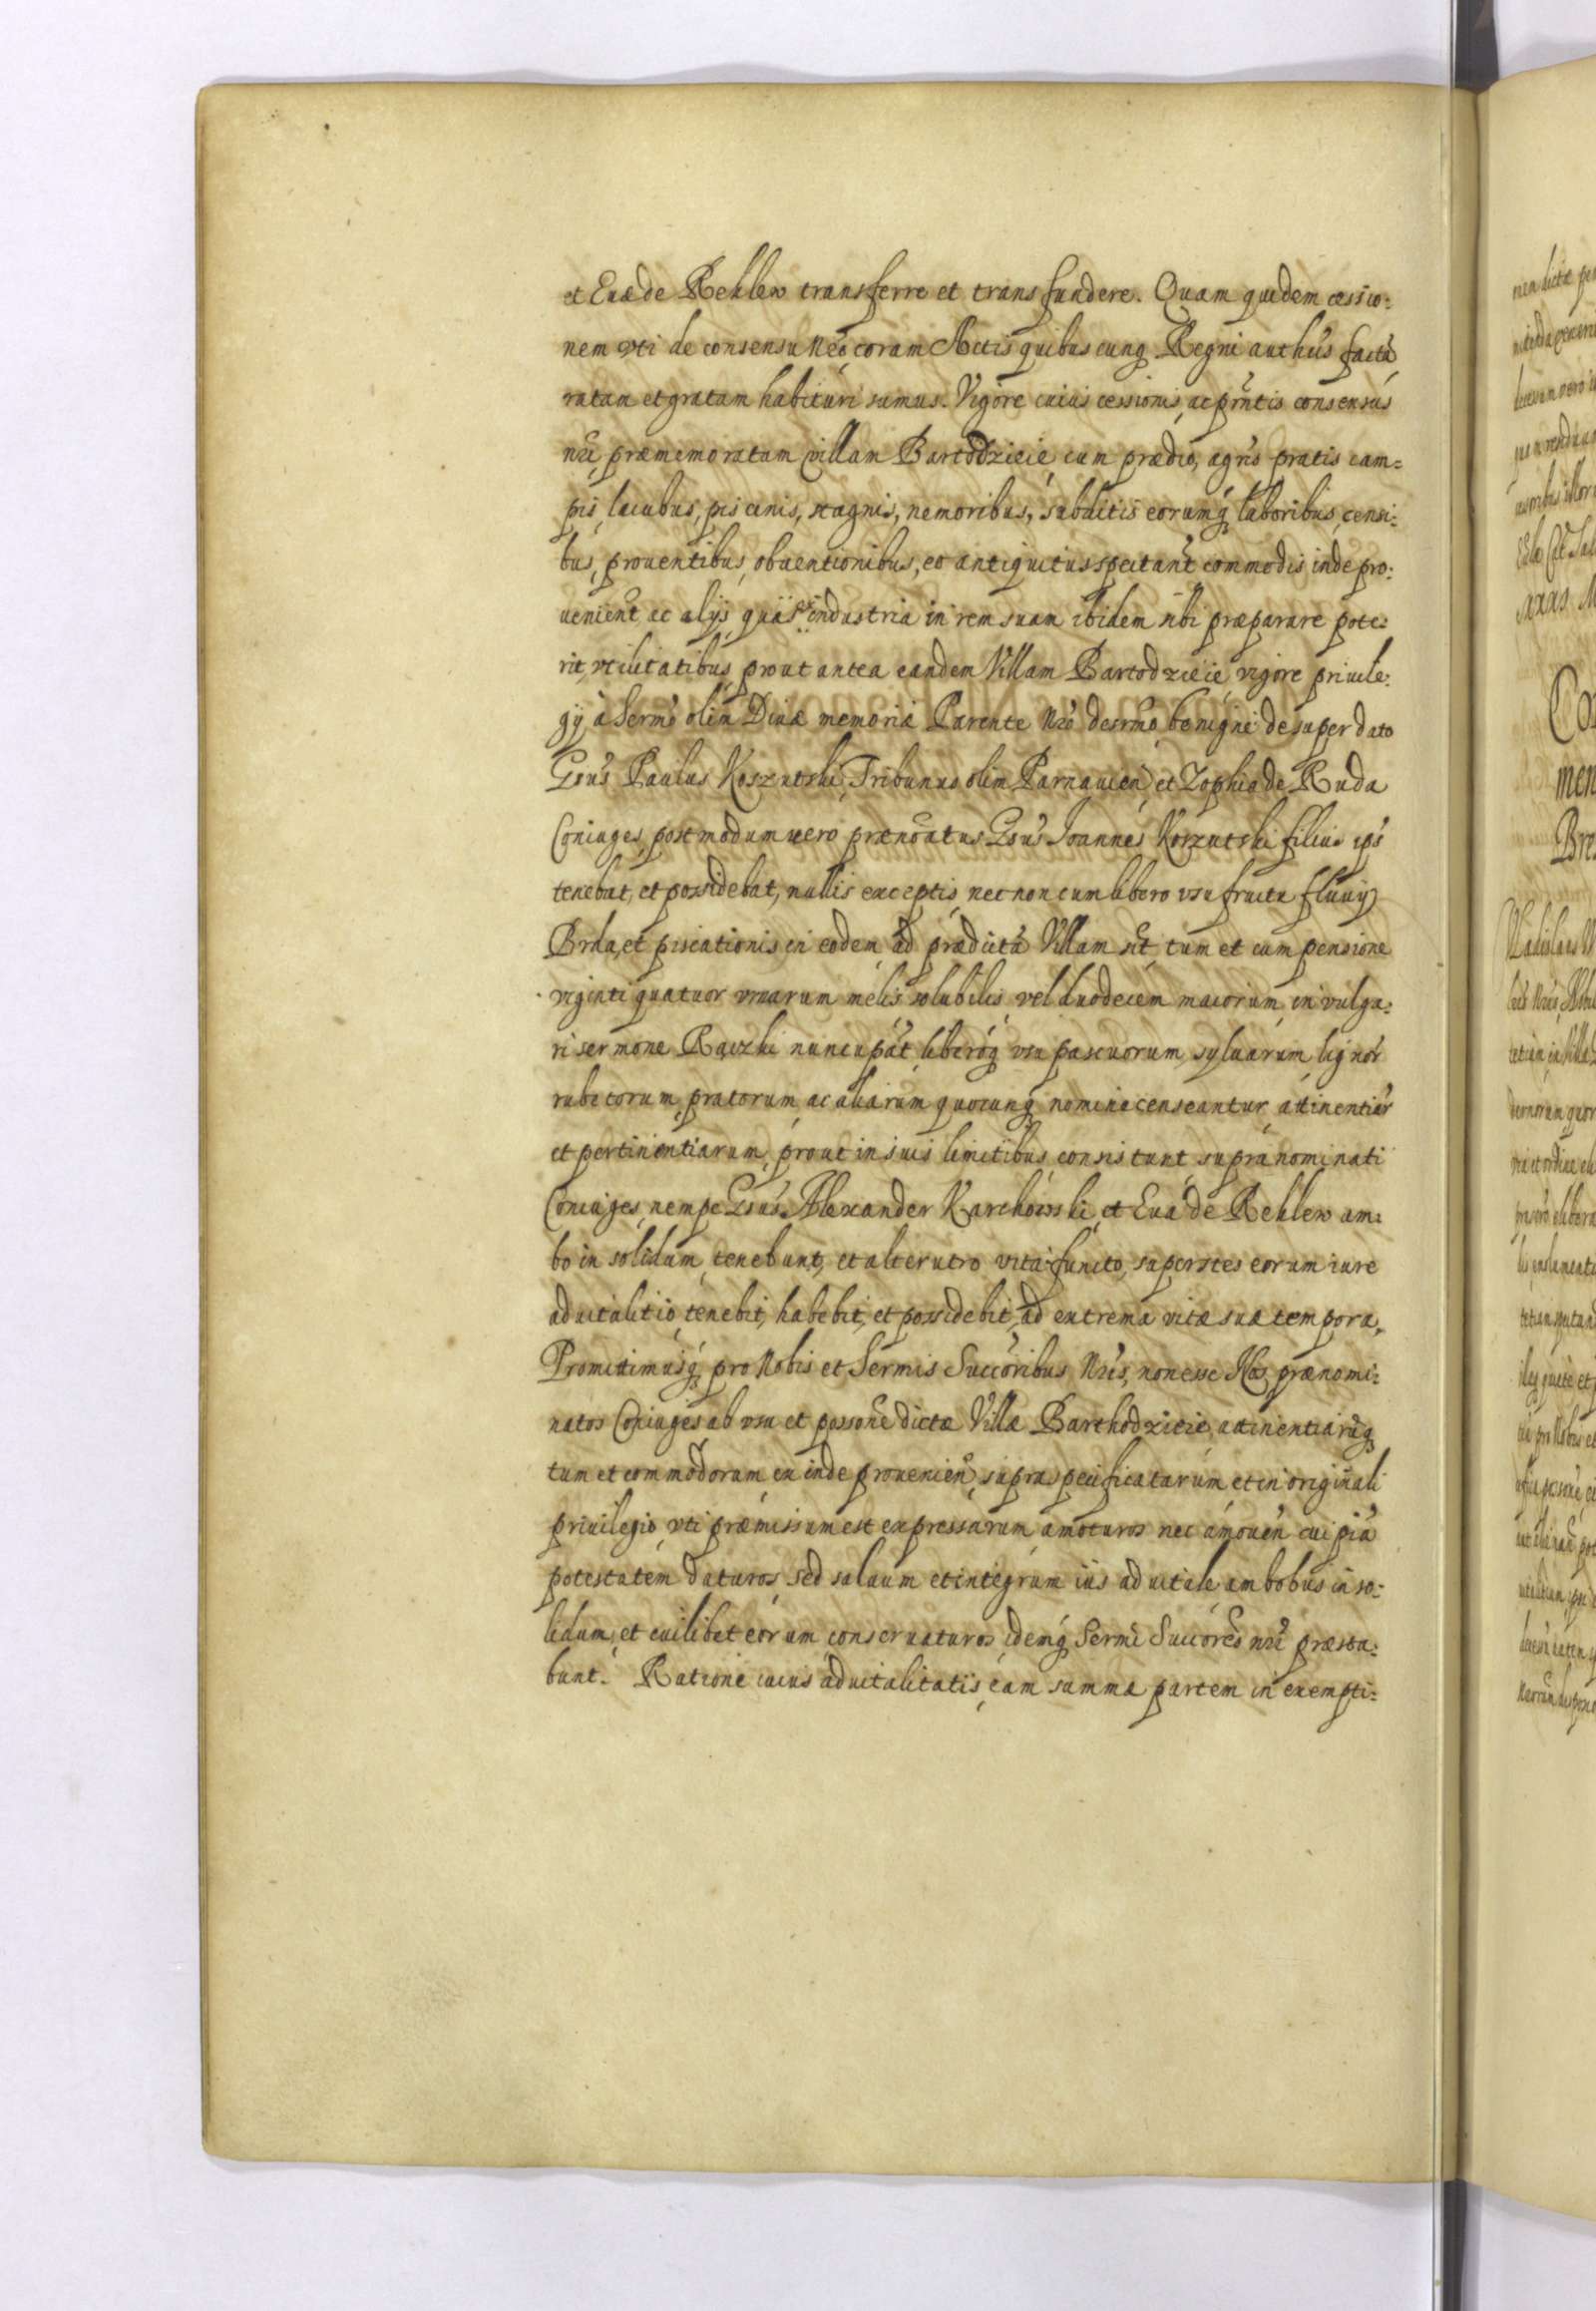 et Euæ de Rehlew transferre et transfundere. Quam quidem cessio:
nem vti de consensu nr̃o coram Actis quibuscunq Regni authẽis factã
ratam et gratam habituri sumus. Vigore cuius cessionis, ac pr̃ntis consensus
nr̃i præmemoratam villam Bartodzieie cum prædio, agris pratis cam=
pis, lacubus, piscinis, stagnis, nemoribus, subditis eorumq laboribus censi:
bus, prouentibus, obuentionibus, eo antiquitus spectant̃ commodis inde pro:
uenient̃ ac alijs quãs industria in rem suam ibidem sibi præparare pote:
rit, vtilitatibus, prout antea eandem Villam Bartodzieie vigore priuile:
gij à Sermo olim Diuæ memoriæ Parente Nr̃o desrmo benigne desuper dato
Gsus Paulus Koszutski, Tribunus olim Parnauien̄ et Zophia de Ruda
Coniuges, postmodum uero prænõatus Gsus Joannes Koszutski filius ips̃
tenebat, et possidebat, nullis exceptis, nec non cum libero vsufructu fluuij
Brda, et piscationis in eodem ad prædictã Villam sit̃, tum et cum pensione
viginti quatuor vrnarum melis solubilis, vel duodecem maiorum, in vulga:
ri sermone Rączki nuncupat̃, liberoq vsu pascuorum, syluarum, lignor̃
rubetorum, pratorum, ac aliarum quocunq nomine censeantur, attinentiar̃
et pertinentiarum, prout in suis limitibus consistunt supranominati
Coniuges, nempe Gsus Alexander Karchowski, et Eua de Rehlew am:
bo in solidum, tenebunt, et alterutro vita functo, superstes eorum iure
aduitalitio, tenebit, habebit, et possidebit, ad extrema vitæ suæ tempora.
Promittimusq, pro Nobis et Sermis Succoribus Nr̃is, non esse Nos prænomi:
natos Coniuges, ab vsu et possone dictæ Villæ Barthodzieie, attinentiarũq
tum et commodorum, ex inde prouenien̄, supra specificatarum, et in originali
priuilegio vti præmissum est expressarum, amoturos nec amouen̄ cuipiã
potestatem daturos, sed saluum et integrum ius aduitale, ambobus in so:
lidum, et cuilibet eorum conseruaturos, idemq Sermi Succores nr̃i præsta:
bunt. Ratione cuius aduitalitatis, eam summæ partem in exempti: